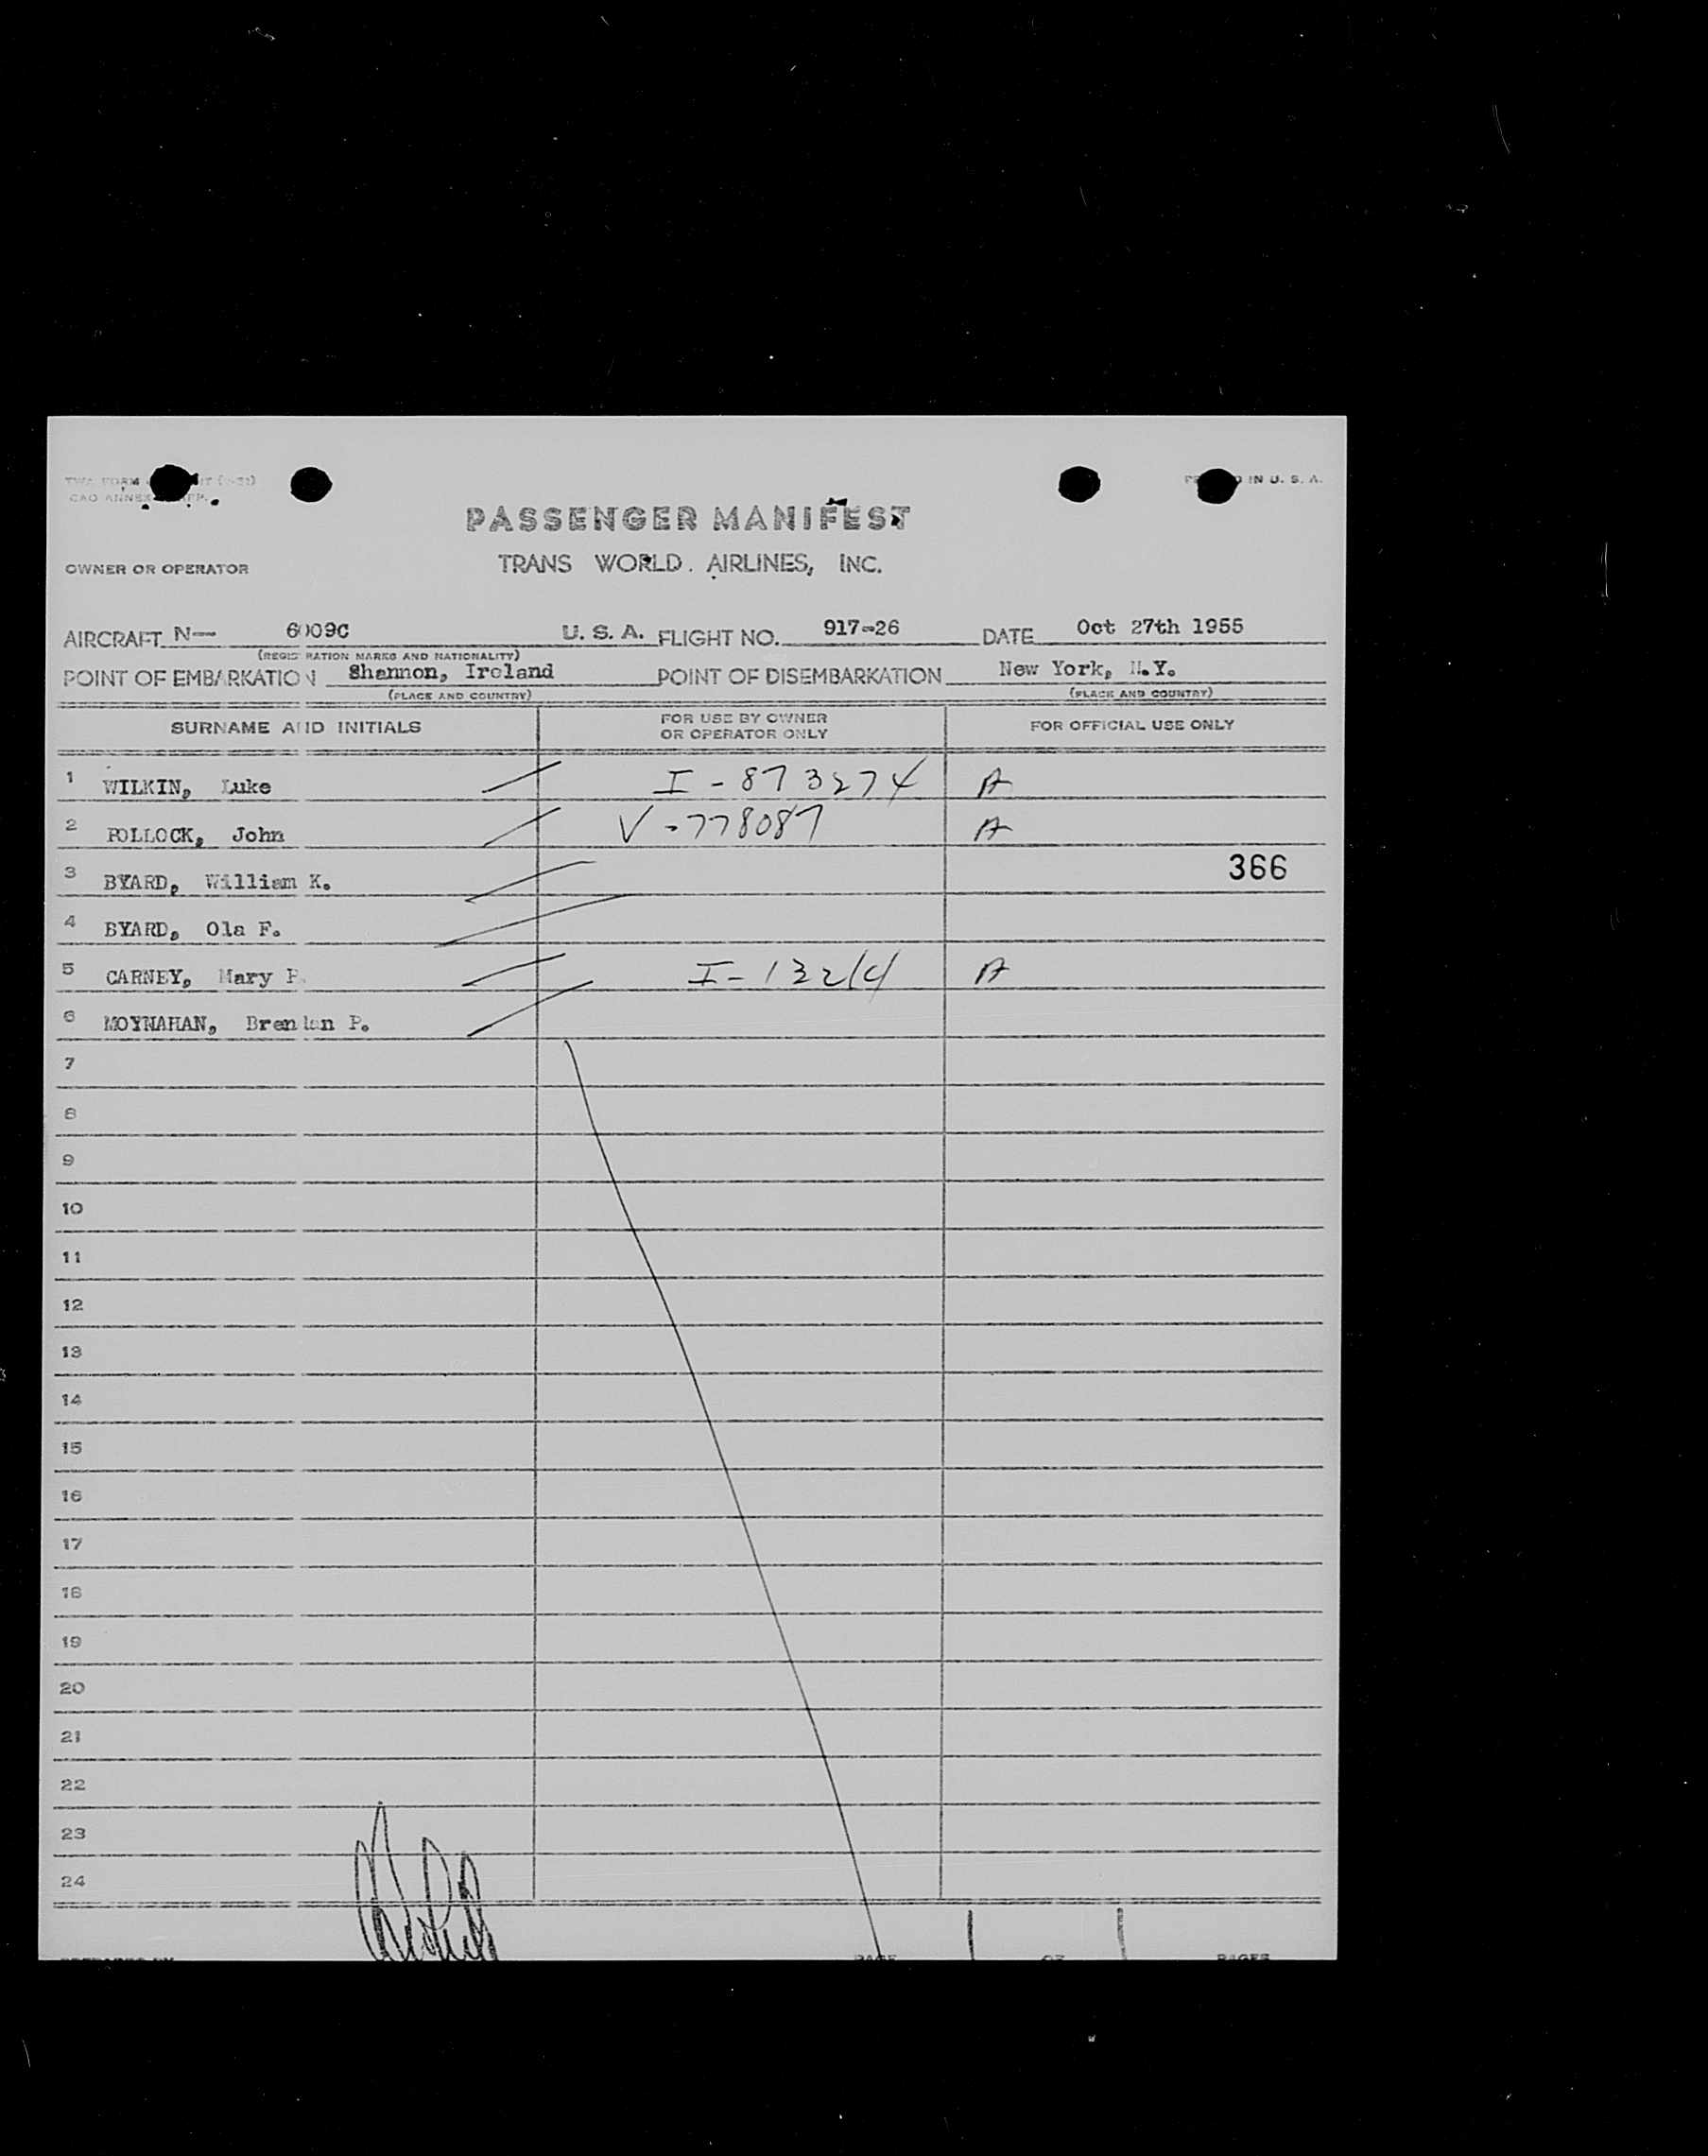 TWA FORM
CAO ANNEX
IN U. S. A.
PASSENGER MANIFEST
OWNER OR OPERATOR TRANS WORLD AIRLINES, INC.
AIRCRAFT N- 6009C U. S. A. FLIGHT NO. 917-26 DATE Oct 27th 1955
(REGISTRATION MARKS AND NATIONALITY)
POINT OF EMBARKATION Shannon, Ireland POINT OF DISEMBARKATION New York, N.Y.
(PLACE AND COUNTRY) (PLACE AND COUNTRY)
SURNAME AND INITIALS FOR USE BY OWNER OR OPERATOR ONLY FOR OFFICIAL USE ONLY
1 WILKIN, Luke I-873274 A
2 POLLOCK, John V-778087 A
3 BYARD, William K. 366
4 BYARD, Ola F.
5 CARNEY, Mary P. I-13214 A
6 MOYNAHAN, Brendan P.
7
8
9
10
11
12
13
14
15
16
17
18
19
20
21
22
23
24
PREPARED BY PAGE 1 OF 1 PAGES